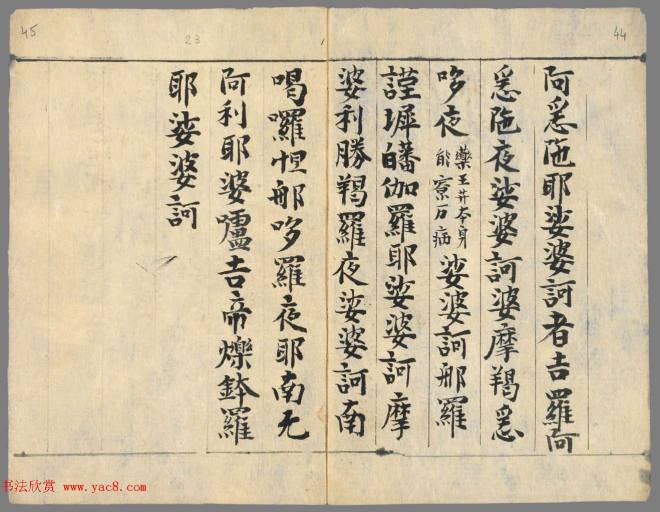 45
23
44
阿悉陁耶娑婆訶者吉羅阿
悉陁夜娑婆訶婆摩羯悉
哆夜藥王并本身能寮万病娑婆訶那羅
謹墀皤伽羅耶娑婆訶摩
婆利勝羯羅夜娑婆訶南
喝囉怛那哆羅夜耶南无
阿利耶婆嚧吉帝爍鉢羅
耶娑婆訶
书法欣赏 www.yac8.com